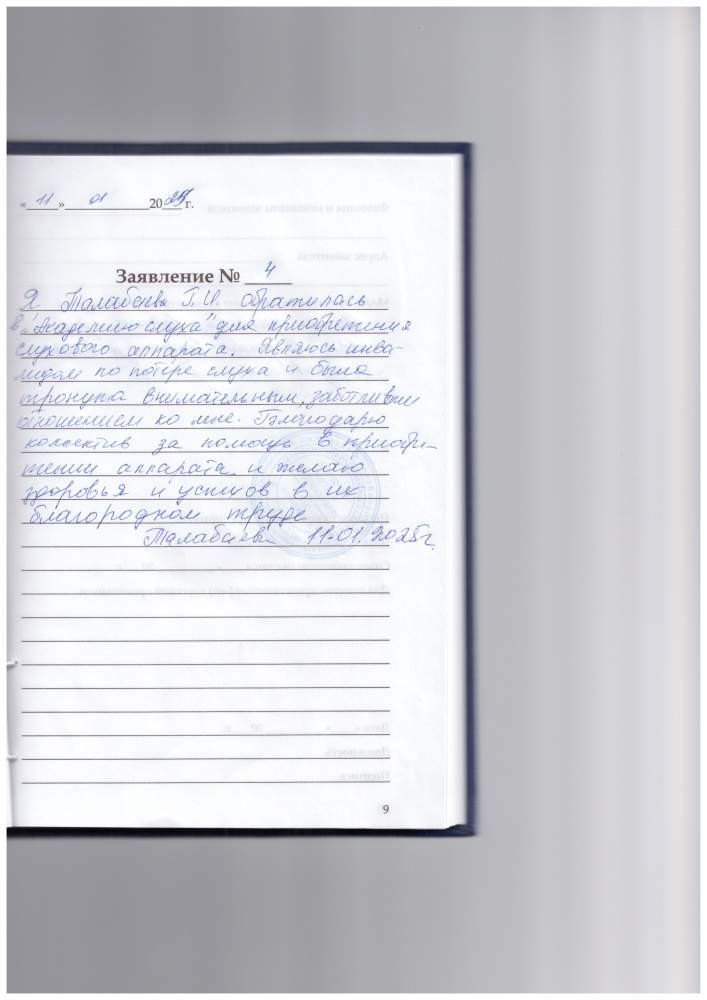 «11» 01 2025 г.
Заявление № 4
Я Талабаева Г.И. обратилась
в "Академию слуха" для приобретения
слухового аппарата. Являюсь инва-
лидом по потере слуха и была
тронута внимательным, заботливым
отношением ко мне. Благодарю
коллектив за помощь в приобре-
тении аппарата и желаю
здоровья и успехов в их
благородном труде
Талабаева 11.01.2025г.
9